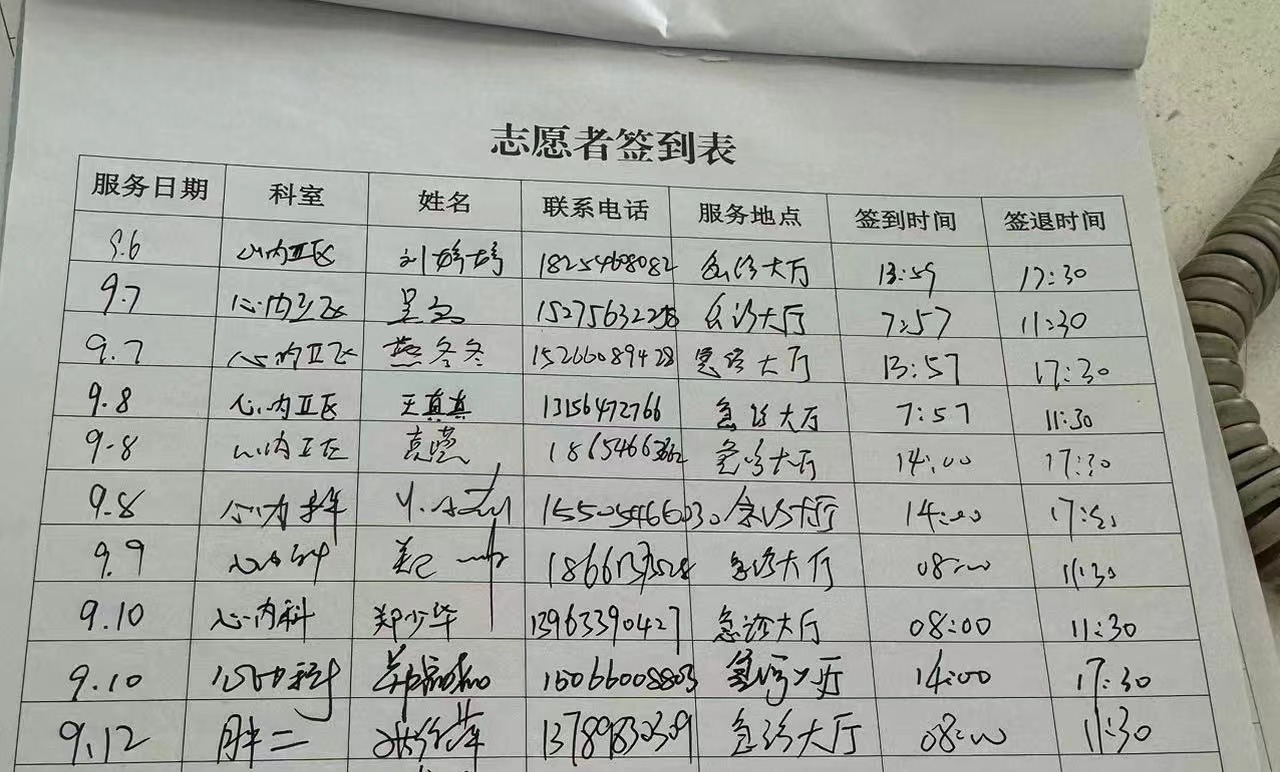 志愿者签到表
服务日期 科室 姓名 联系电话 服务地点 签到时间 签退时间
9.6 心内Ⅱ区 刘婷婷 18254608082 急诊大厅 13:59 17:30
9.7 心内Ⅱ区 15275632238 急诊大厅 7:57 11:30
9.7 心内Ⅱ区 燕冬冬 15266089428 急诊大厅 13:57 17:30
9.8 心内Ⅱ区 王真真 13156472766 急诊大厅 7:57 11:30
9-8 心内Ⅱ区 袁莹 急诊大厅 14:00 17:30
9.8 心内 急诊大厅 14:00 17:30
9.9 心内科 急诊大厅 08:00 11:30
9.10 心内科 郑少华 13963390427 急诊大厅 08:00 11:30
9.10 心内科 15066008803 急诊大厅 14:00 17:30
9.12 胖二 急诊大厅 08:00 11:30